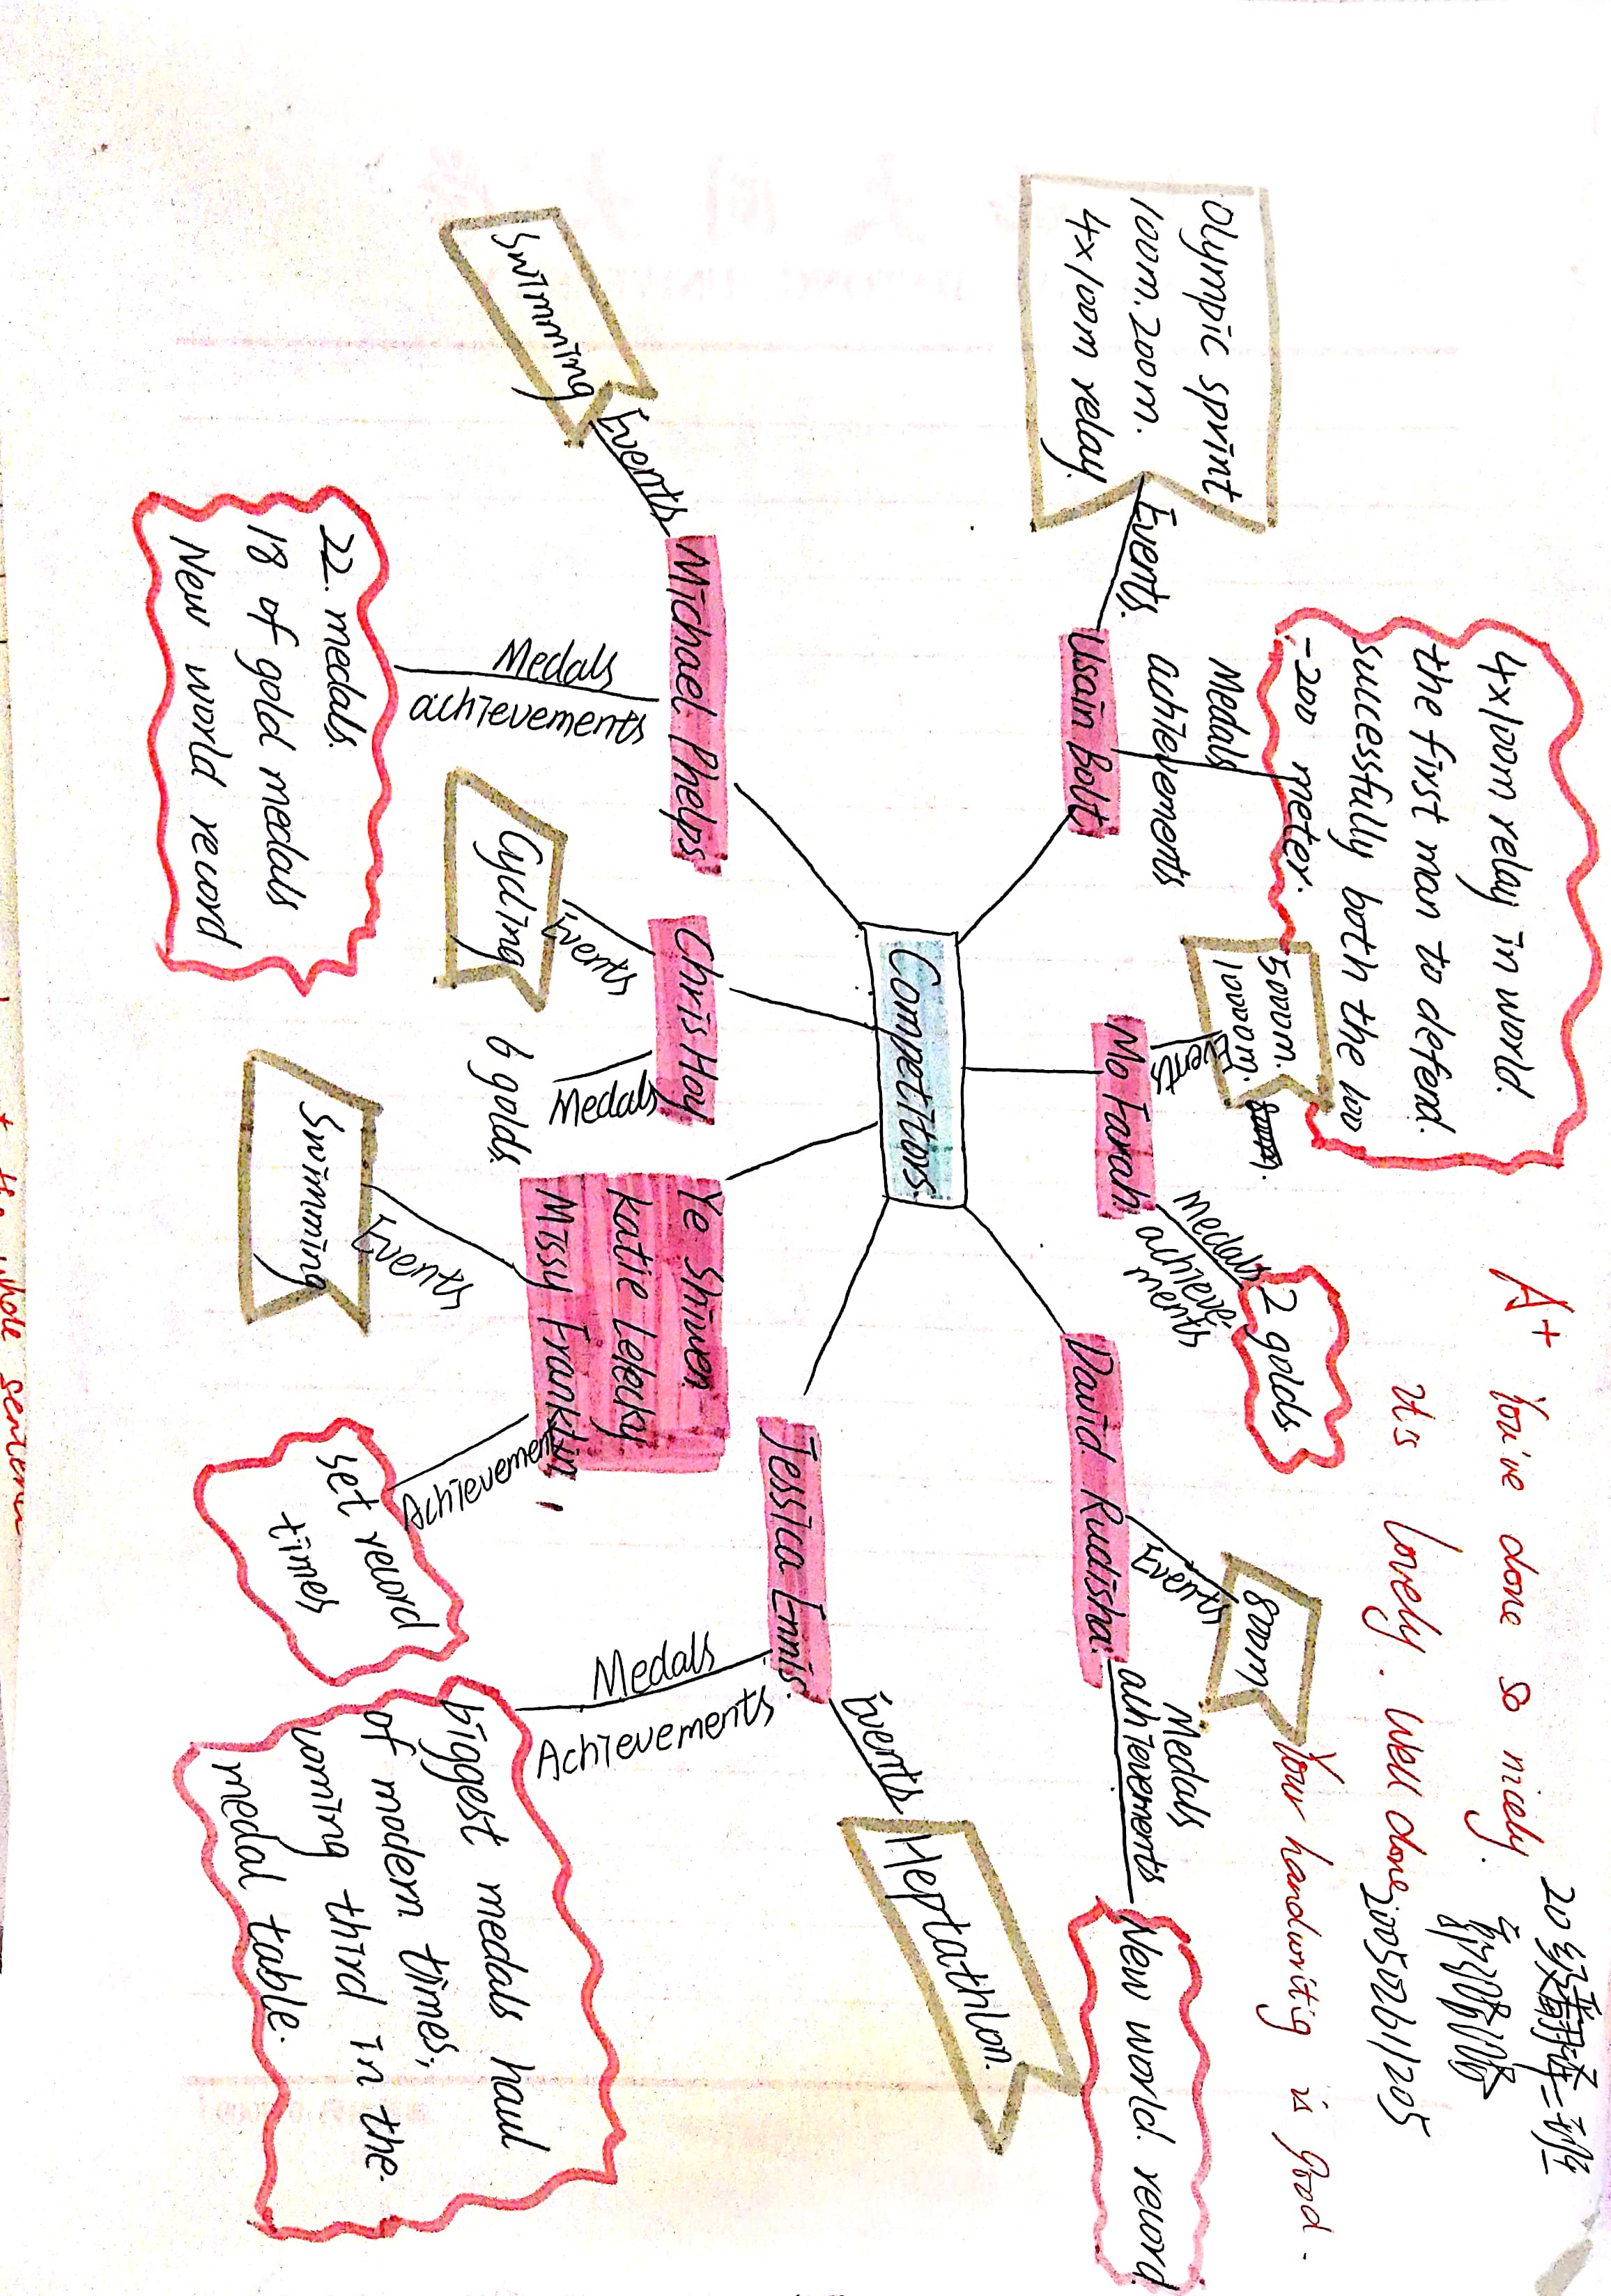 Olympic sprint
100m. 200m.
4x100m relay.
Events.
Usain Bolt
Medals
achievements
4x100m relay in world.
the first man to defend.
successfully both the 100
-200 meter.
5000m.
10000m.
Events
Mo Farah.
Medals
achieve
ments
2 golds.
A+ You've done so nicely.
It's lovely. Well done
Your handwritig is good.
200502611205
David Rudisha.
Events
800m
Medals
achievements
New world. record
Competitors.
Swimming
Events
Michael Phelps
Medals
achievements
22. medals.
18 of gold medals
New world record
Chris Hoy
Events
Cycling
Medals
6 golds.
Ye Shiwen
Katie Lelecky
Missy Franklin
Events
Swimming
Achievement
Set record
times
Jessica Ennis.
Events
Heptathlon.
Medals
Achievements
biggest medals haul
of modern times,
coming third in the.
medal table.
whole sentence